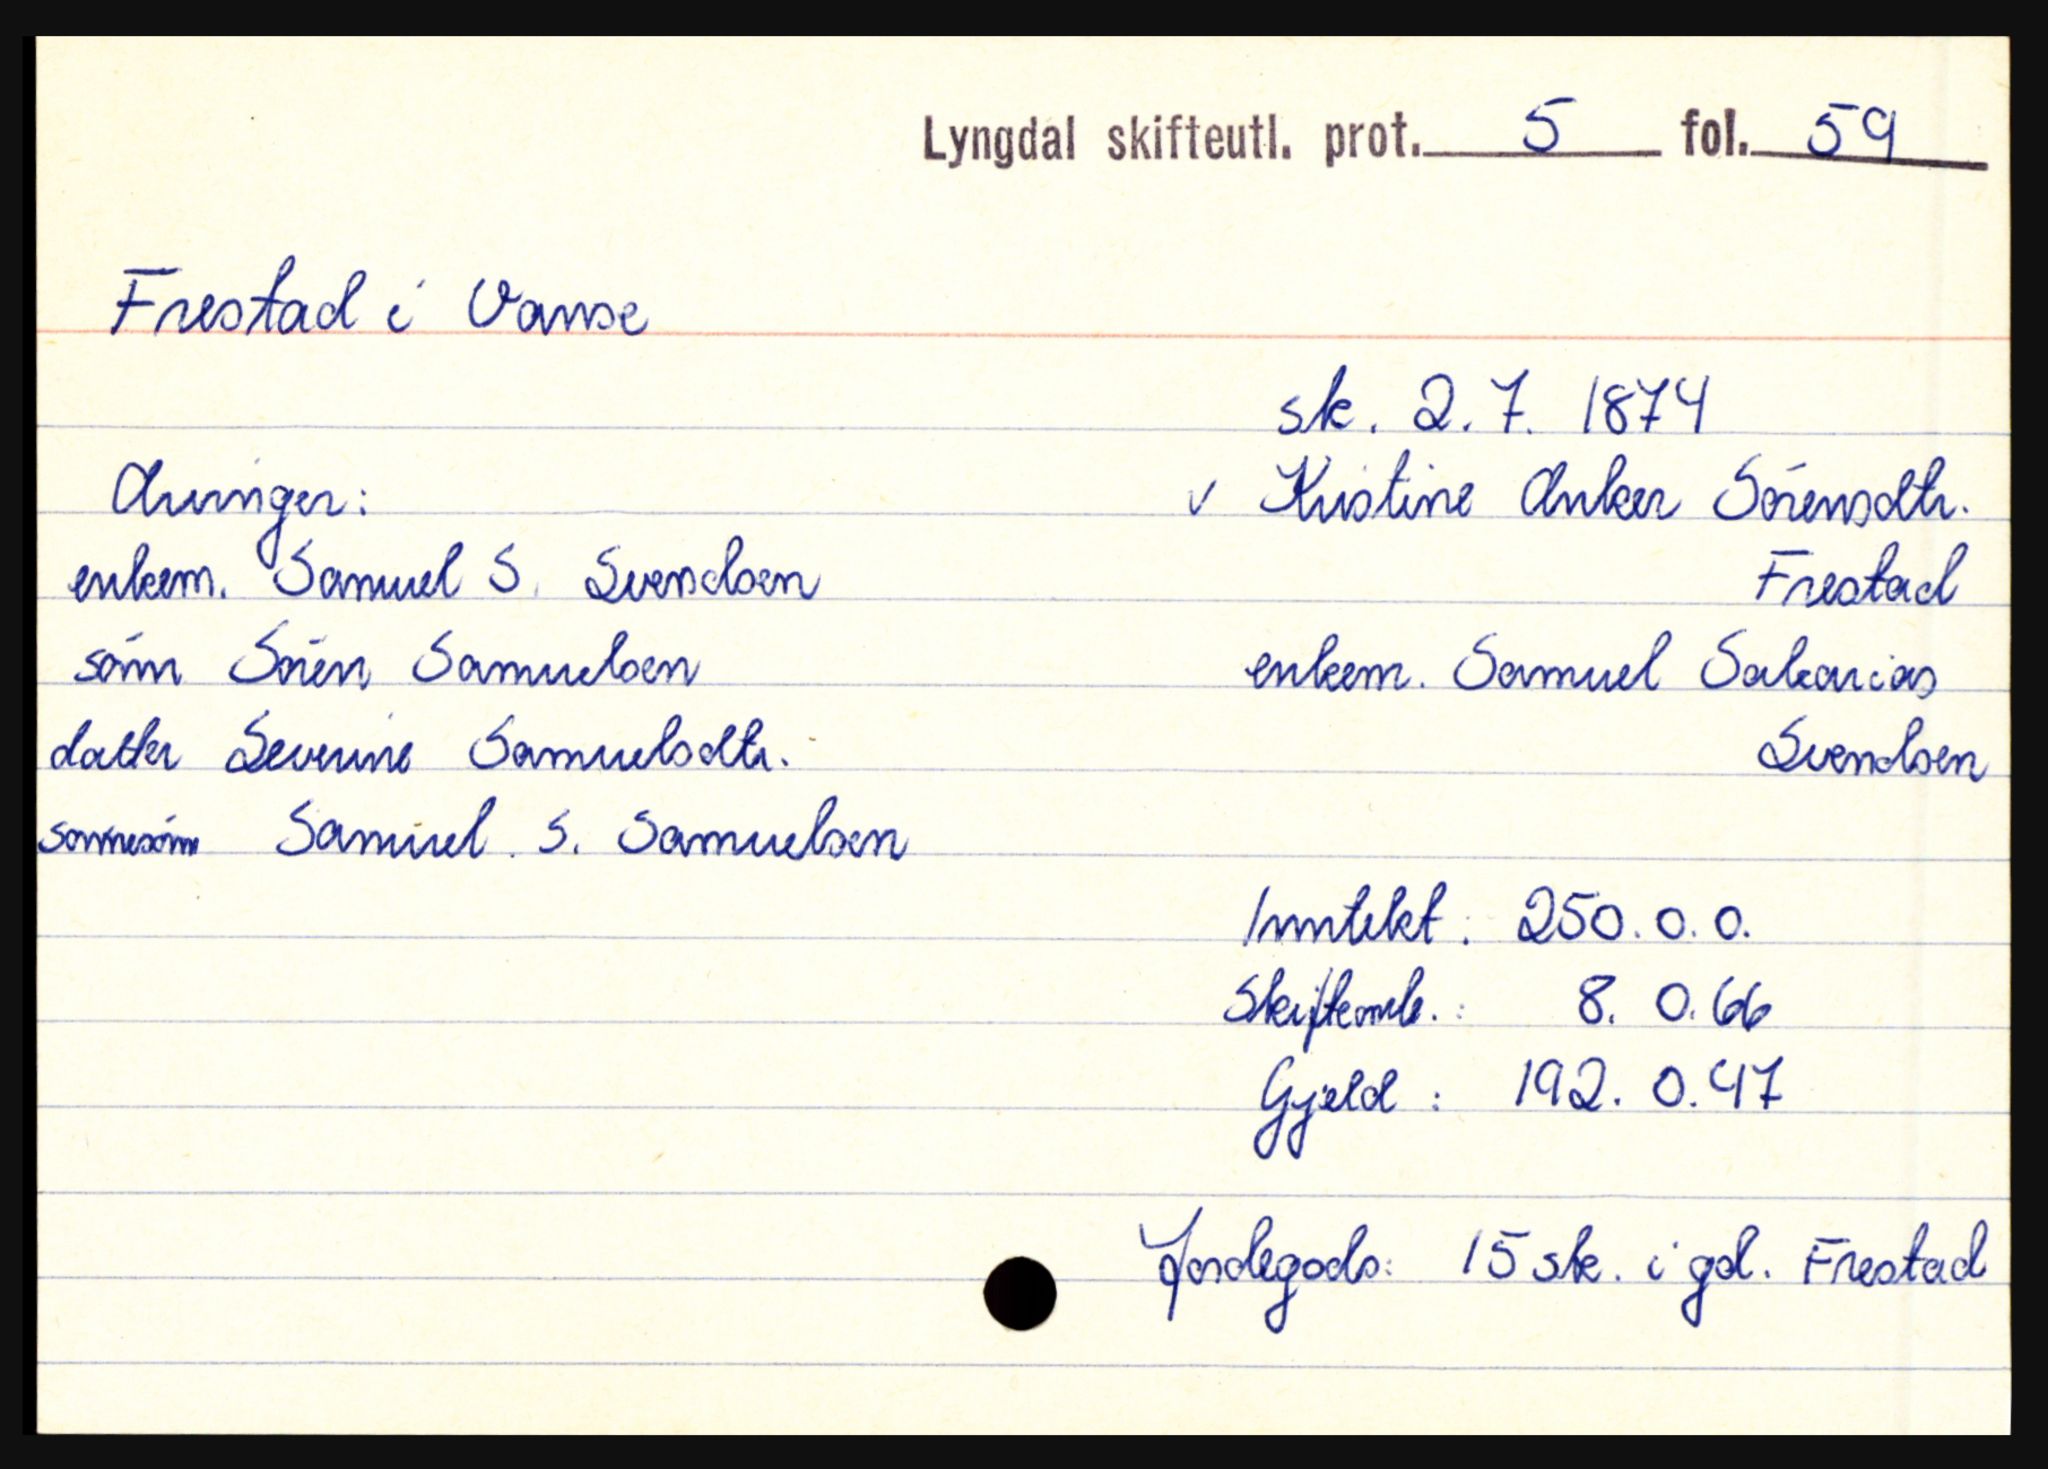 Lyngdal skifteutl. prot. 5 fol. 59
Frestad i Vanse
sk. 2.7. 1874
Arvinger:
enkem. Samuel S. Svendsen
sönn Sören Samuelsen
datter Severine Samuelsdtr.
sonnesönn Samuel S. Samuelsen
v Kristine Anker Sörensdtr.
Frestad
enkem. Samuel Sakarias
Svendsen
Inntekt: 250. 0. 0.
Skifteomk.: 8. 0. 66
Gjeld: 192. 0. 47
Jordegods: 15 sk. i gd. Frestad